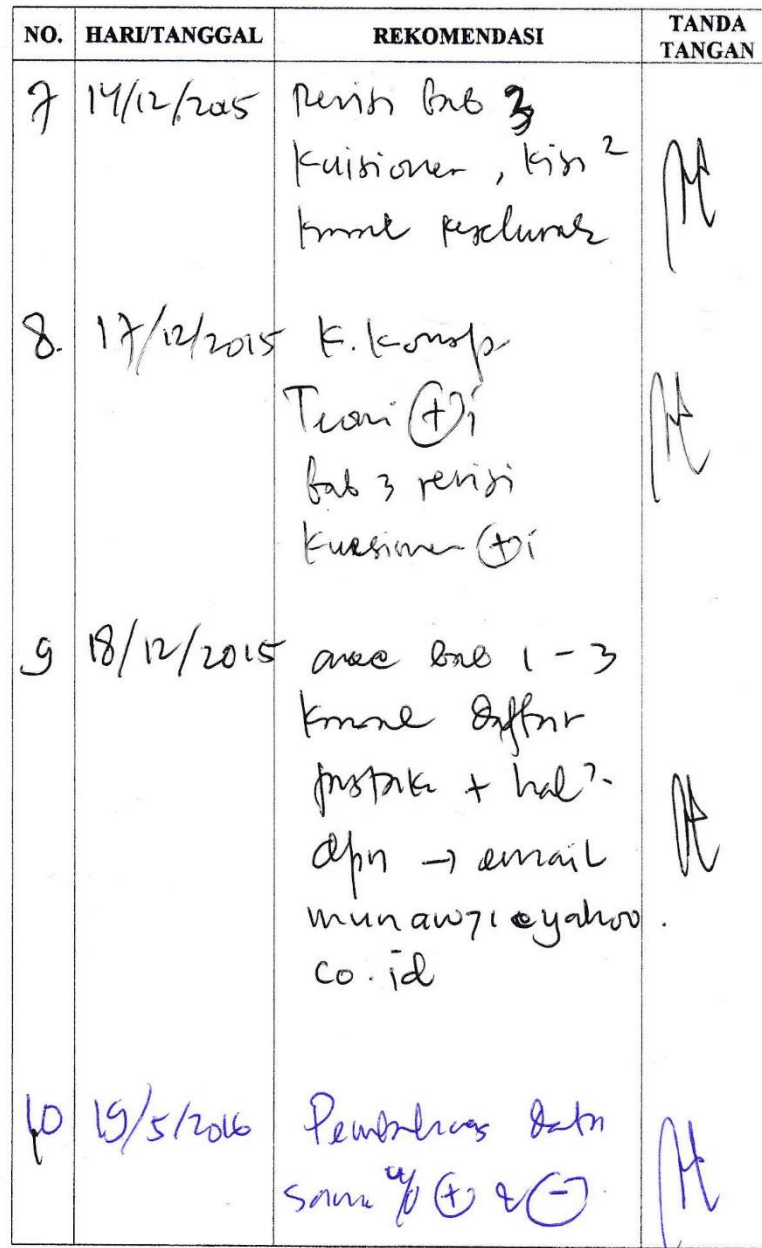 NO. HARI/TANGGAL REKOMENDASI TANDA TANGAN
7 14/12/2015 Revisi bab 3
Kuisioner, kisi²
8. 17/12/2015 K. Konsep
Teori (+)i
bab 3 revisi
Kuesioner (+)i
9 18/12/2015 acc bab 1 - 3
daftar
pustaka + hal²
dpn → email
munaw71@yahoo.
co.id
10 19/5/2016 Pembahasan data
(+) & (-)